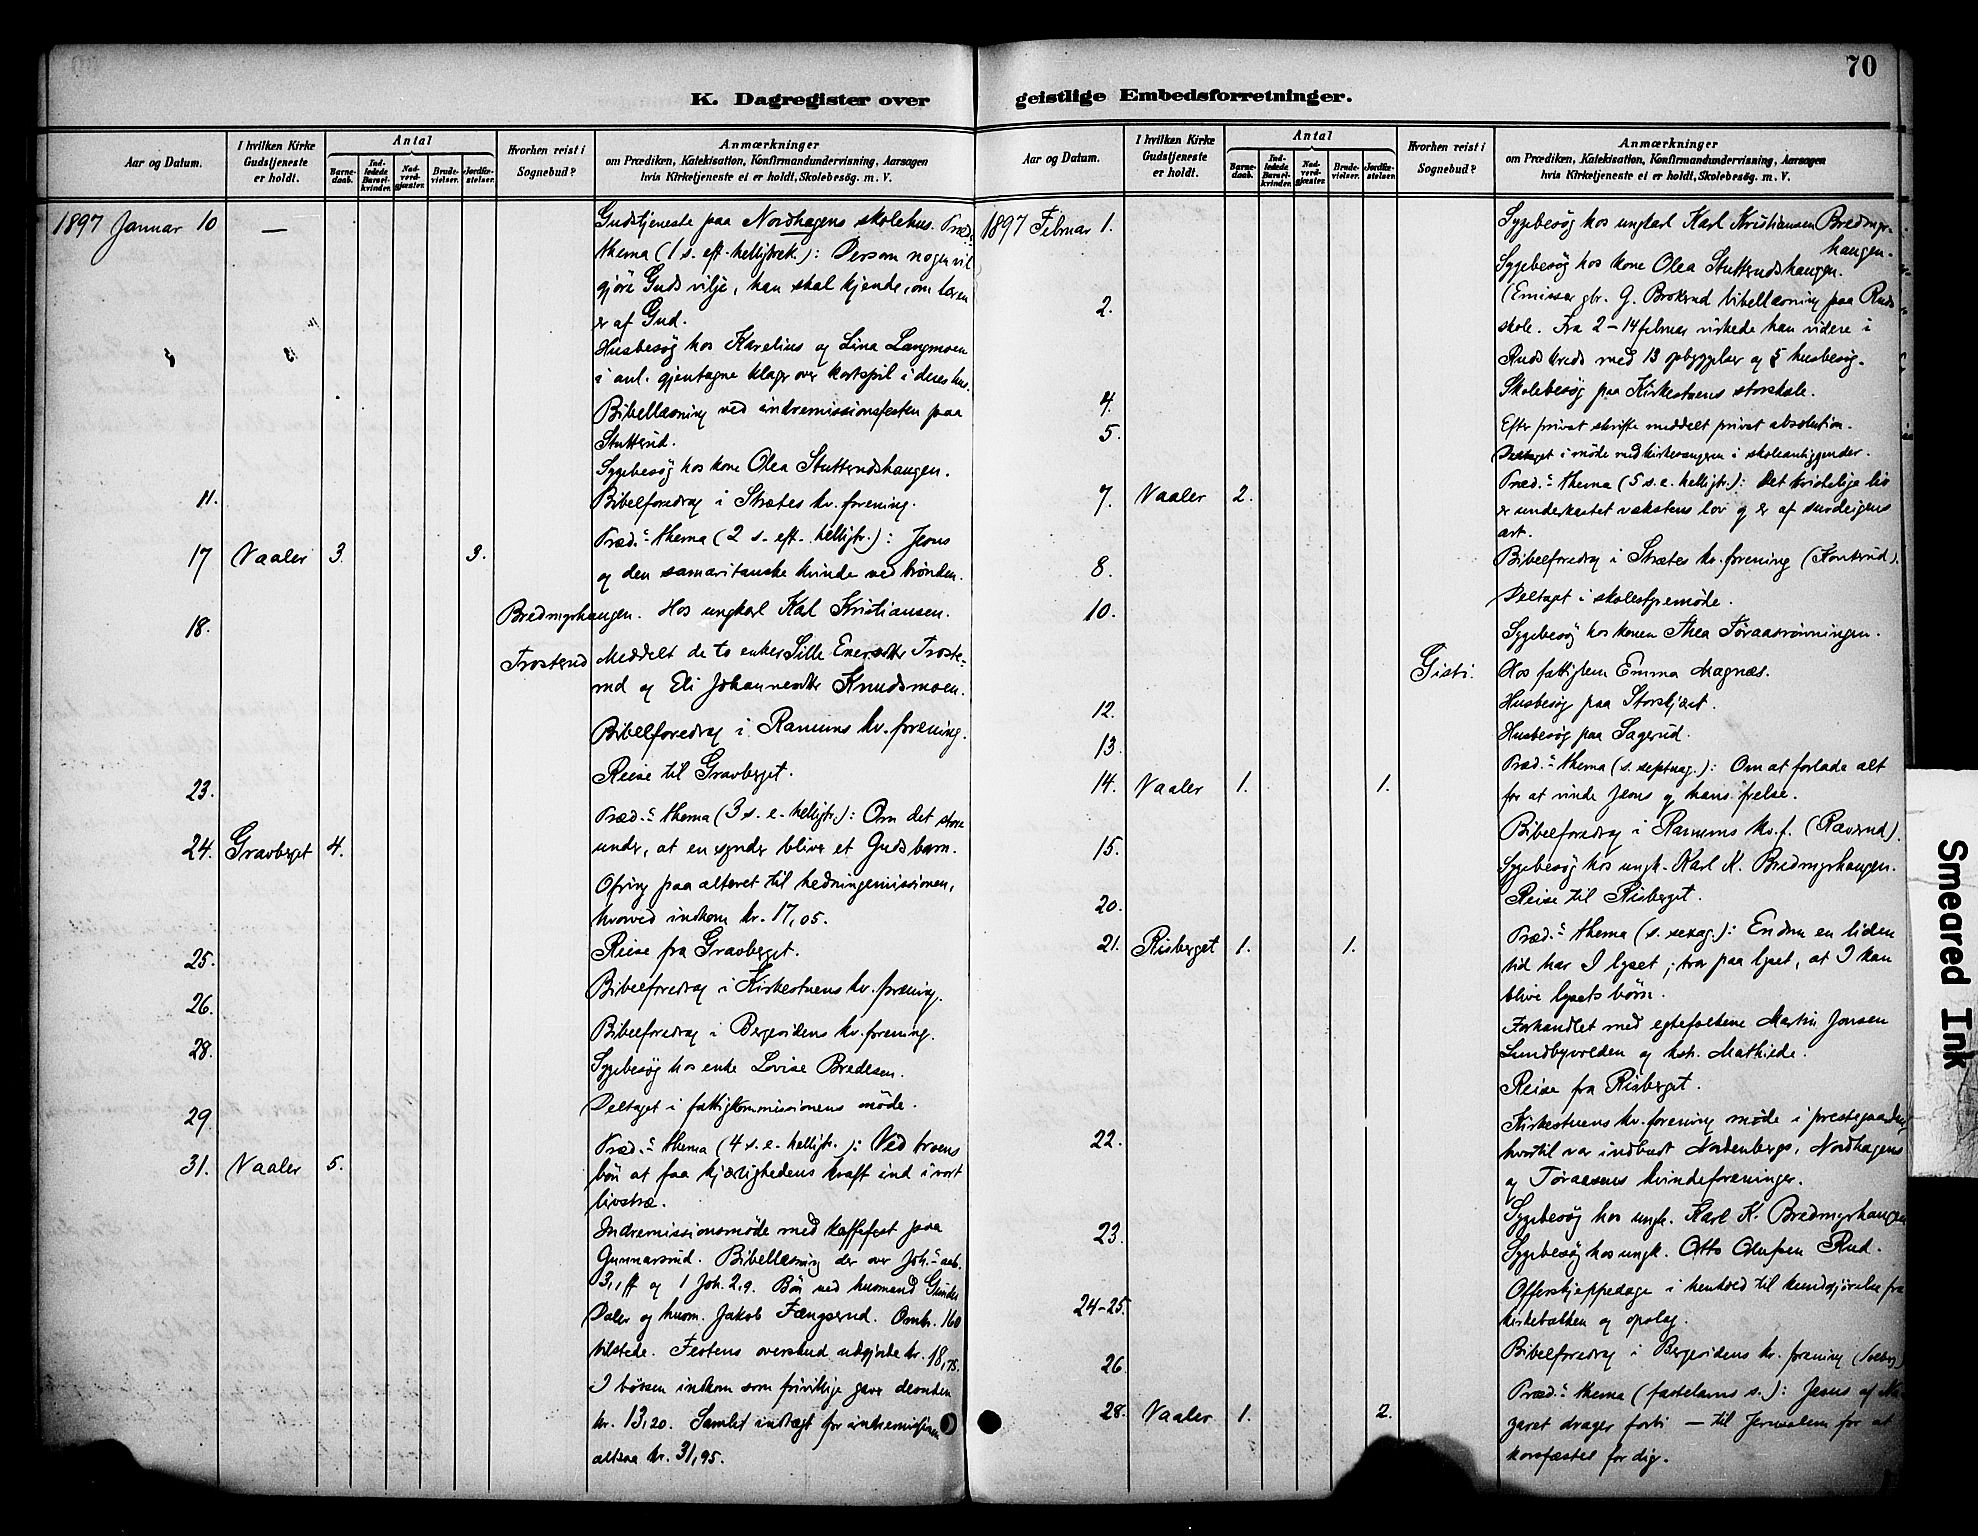 70
K. Dagregister over
geistlige Embedsforretninger.
Aar og Datum.
I hvilken Kirke
Gudstjeneste
er holdt.
Antal
Barne-
daab.
Ind-
ledede
Barsel-
kvinder.
Nad-
verd-
gjæster.
Brude-
vielser.
Jordfæ-
stelser.
Hvorhen reist i
Sognebud?
Anmærkninger
om Prædiken, Katekisation, Konfirmandundervisning, Aarsagen
hvis Kirketjeneste ei er holdt, Skolebesøg. m. V.
1897 Januar 10 — Gudstjeneste paa Nordhagens skolehus. Præd.
thema (1 s. eft. helligtrek.): Dersom nogen vil
gjøre Guds vilje, han skal kjende, om læren
er af Gud.
Husbesøg hos Karelius og Lina Langmoen
i anl. gjentagne klager over kortspil i deres hus.
Bibellæsning ved indremissionsfesten paa
Stutterud.
Sygebesøg hos kone Olea Stutterudshaugen.
11. Bibelforedrag i Strætes kv. forening.
17 Vaaler 3. 3. Præd.: thema (2 s. eft. helligtr.): Jesus
og den samaritanske kvinde ved brønden.
18. Bredmyrhaugen. Hos ungkarl Karl Kristiansen.
Trosterud Meddelt de to enker Sille Enersdtr Troste-
rud og Eli Johannesdtr Knudsmoen.
Bibelforedrag i Ramuns kv. forening.
23. Reise til Gravberget.
24. Gravberget 4. Præd.: thema (3 s. e. helligtr.): Om det store
under, at en synder bliver et Guds barn.
Ofring paa alteret til hedningemissionen,
hvorved indkom kr. 17,05.
25. Reise fra Gravberget.
26. Bibelforedrag i Kirkestuens kv. forening.
28. Bibelforedrag i Bergesidens kv. forening.
Sygebesøg hos enke Lovise Bredesen.
29. Deltaget i fattigkommissionens møde.
31. Vaaler 5. Præd.: thema (4 s. e. helligtr.): Ved troens
bøn at faa kjærlighedens kraft ind i vort
livstræ.
Indremissionsmøde med kaffefest paa
Gunnarsrud. Bibellæsning der over Joh. aab.
3,1 ff og 1 Joh. 2,9. Bøn ved husmand Gunder
Daler og husm. Jakob Fængsrud. Omtr. 160
tilstede. Festens overskud udgjorde kr. 18,75.
I bøssen indkom som frivillige gaver desuden
kr. 13,20. Samlet indtægt for indremissionen
altsaa kr. 31,95.
Aar og Datum.
I hvilken Kirke
Gudstjeneste
er holdt.
Antal
Barne-
daab.
Ind-
ledede
Barsel-
kvinder.
Nad-
verd-
gjæster.
Brude-
vielser.
Jordfæ-
stelser.
Hvorhen reist i
Sognebud?
Anmærkninger
om Prædiken, Katekisation, Konfirmandundervisning, Aarsagen
hvis Kirketjeneste ei er holdt, Skolebesøg. m. V.
1897 Februar 1. Sygebesøg hos ungkarl Karl Kristiansen Bredmyr-
haugen.
Sygebesøg hos kone Olea Stutterudshaugen.
2. (Emissær gbr. G. Brokerud bibellæsning paa Ruds
skole. Fra 2–14 februar virkede han videre i
Ruds kreds med 13 opbyggelser og 5 husbesøg.
4. Skolebesøg paa Kirkestuens storskole.
5. Efter privat skrifte meddelt privat absolution.
Deltaget i møde med kirkesangeren i skoleanliggender.
7. Vaaler 2. Præd.: thema (5 s. e. helligtr.): Det kristelige liv
er underkastet vækstens lov og er af surdeigens
art.
8. Bibelforedrag i Strætes kv. forening (Konterud).
10. Deltaget i skolestyremøde.
Sygebesøg hos konen Thea Føraasrønningen.
Gisti. Hos fattiglem Emma Magnæs.
12. Husbesøg paa Storskjæret.
13. Husbesøg paa Sagerud.
14. Vaaler 1. 1. Præd.: thema (s. septuag.): Om at forlade alt
for at vinde Jesus og hans frelse.
15. Bibelforedrag i Ramuns kv.f. (Raverud).
Sygebesøg hos ungk. Karl K. Bredmyrhaugen.
20. Reise til Risberget.
21. Risberget 1. 1. Præd.: thema (s. sexag.): Endnu en liden
tid har I lyset; tror paa lyset, at I kan
blive lysets børn.
Forhandlet med egtefolkene Martin Jonsen
Lundbyvolden og hstr. Mathilde.
Reise fra Risberget.
22. Kirkestuens kv. forening møde i prestegaarden
hvortil var indbudt Nordenbergs, Nordhagens
og Føraasens kvindeforeninger.
23. Sygebesøg hos ungk. Karl K. Bredmyrhaugen
Sygebesøg hos ungk. Otto Olufsen Rud.
24–25. Offerskjeppedage i henhold til kundgjørelse fra
kirkebakken og opslag.
26. Bibelforedrag i Bergesidens kv. forening
28. Vaaler 1. 2. Præd.: thema (fastelavns s.): Jesus af Na-
zaret drager forbi — til Jerusalem for at
korsfæstes for dig.
Smeared Ink